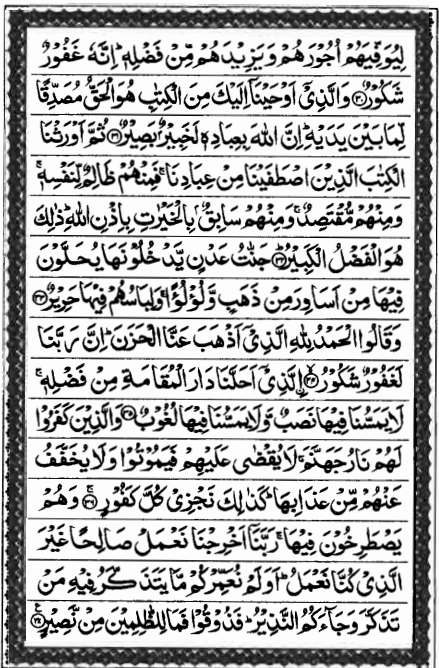 لِيُوَفِّيَهُمْ اُجُوْرَهُمْ وَيَزِيْدَهُمْ مِّنْ فَضْلِهٖ ؕ اِنَّهٗ غَفُوْرٌ
شَكُوْرٌ ﴿۳۰﴾ وَالَّذِیْۤ اَوْحَيْنَاۤ اِلَيْكَ مِنَ الْكِتٰبِ هُوَ الْحَقُّ مُصَدِّقًا
لِّمَا بَيْنَ يَدَيْهِ ؕ اِنَّ اللّٰهَ بِعِبَادِهٖ لَخَبِيْرٌۢ بَصِيْرٌ ﴿۳۱﴾ ثُمَّ اَوْرَثْنَا
الْكِتٰبَ الَّذِيْنَ اصْطَفَيْنَا مِنْ عِبَادِنَا ۚ فَمِنْهُمْ ظَالِمٌ لِّنَفْسِهٖ ۚ
وَمِنْهُمْ مُّقْتَصِدٌ ۚ وَمِنْهُمْ سَابِقٌۢ بِالْخَيْرٰتِ بِاِذْنِ اللّٰهِ ؕ ذٰلِكَ
هُوَ الْفَضْلُ الْكَبِيْرُ ﴿۳۲﴾ جَنّٰتُ عَدْنٍ يَّدْخُلُوْنَهَا يُحَلَّوْنَ
فِيْهَا مِنْ اَسَاوِرَ مِنْ ذَهَبٍ وَّلُؤْلُؤًا ۚ وَلِبَاسُهُمْ فِيْهَا حَرِيْرٌ ﴿۳۳﴾
وَقَالُوا الْحَمْدُ لِلّٰهِ الَّذِیْۤ اَذْهَبَ عَنَّا الْحَزَنَ ؕ اِنَّ رَبَّنَا
لَغَفُوْرٌ شَكُوْرُ ﴿۳۴﴾ اِۨلَّذِیْۤ اَحَلَّنَا دَارَ الْمُقَامَةِ مِنْ فَضْلِهٖ ۚ
لَا يَمَسُّنَا فِيْهَا نَصَبٌ وَّلَا يَمَسُّنَا فِيْهَا لُغُوْبٌ ﴿۳۵﴾ وَالَّذِيْنَ كَفَرُوْا
لَهُمْ نَارُ جَهَنَّمَ ۚ لَا يُقْضٰى عَلَيْهِمْ فَيَمُوْتُوْا وَلَا يُخَفَّفُ
عَنْهُمْ مِّنْ عَذَابِهَا ؕ كَذٰلِكَ نَجْزِیْ كُلَّ كَفُوْرٍ ﴿۳۶﴾ ۚ وَهُمْ
يَصْطَرِخُوْنَ فِيْهَا ۚ رَبَّنَاۤ اَخْرِجْنَا نَعْمَلْ صَالِحًا غَيْرَ
الَّذِیْ كُنَّا نَعْمَلُ ؕ اَوَلَمْ نُعَمِّرْكُمْ مَّا يَتَذَكَّرُ فِيْهِ مَنْ
تَذَكَّرَ وَجَآءَكُمُ النَّذِيْرُ ؕ فَذُوْقُوْا فَمَا لِلظّٰلِمِيْنَ مِنْ نَّصِيْرٍ ﴿۳۷﴾ ع